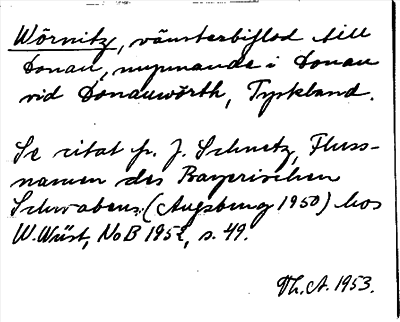 Wörnitz, vänsterbiflod till
Donau, mynnande i Donau
vid Donauwörth, Tyskland.
Se citat fr. J. Schnetz, Fluss-
namen des Bayerischen
Schwabens (Augsburg 1950) hos
W. Wüst, NoB 1952, s. 49.
Th. A. 1953.